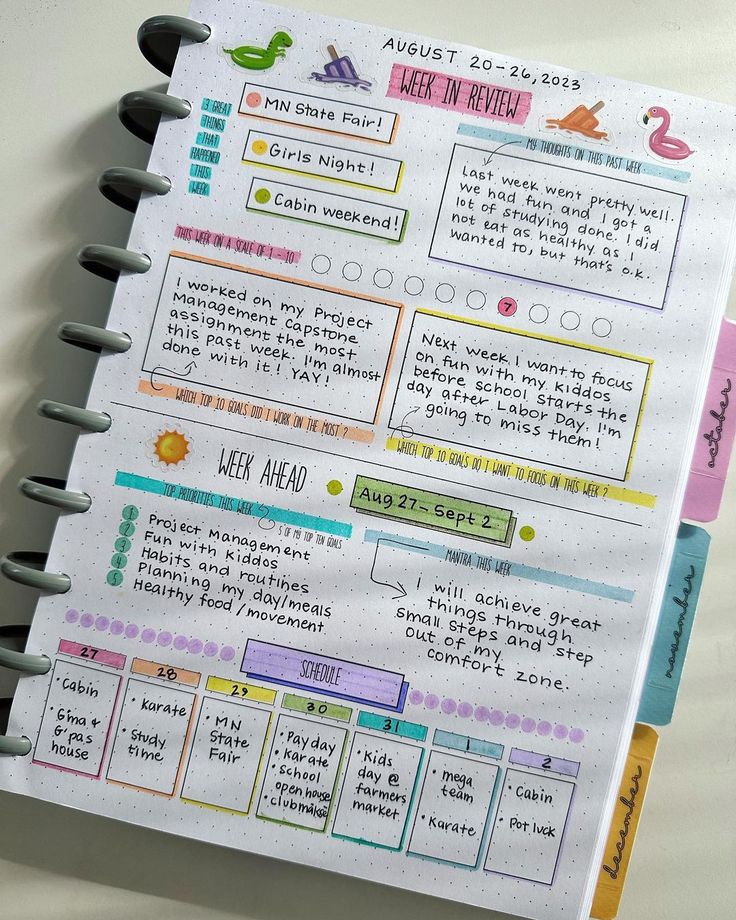 AUGUST 20-26, 2023
WEEK IN REVIEW
3 GREAT
THINGS
THAT
HAPPENED
THIS
WEEK
MN State Fair!
Girls Night!
Cabin weekend!
MY THOUGHTS ON THIS PAST WEEK
Last week went pretty well.
We had fun and I got a
lot of studying done. I did
not eat as healthy as I
wanted to, but that's o.k.
THIS WEEK ON A SCALE OF 1 - 10
7
I worked on my Project
Management Capstone
assignment the most
this past week. I'm almost
done with it! YAY!
WHICH TOP 10 GOALS DID I WORK ON THE MOST ?
Next week I want to focus
on fun with my kiddos
before school starts the
day after Labor Day. I'm
going to miss them!
WHICH TOP 10 GOALS DO I WANT TO FOCUS ON THIS WEEK ?
WEEK AHEAD
Aug 27 - Sept 2
TOP PRIORITIES THIS WEEK
5 OF MY TOP TEN GOALS
1 Project Management
2 Fun with kiddos
3 Habits and routines
4 Planning my day/meals
5 Healthy food/movement
MANTRA THIS WEEK
I will achieve great
things through
small steps and step
out of my
comfort zone.
SCHEDULE
27
• Cabin
• Gma &
G'pas
house
28
• Karate
• Study
time
29
• MN
State
Fair
30
• Pay day
• Karate
• school
open house
31
• Kids
day @
farmers
market
1
• mega
team
• Karate
2
• Cabin
• Pot luck
october
november
december